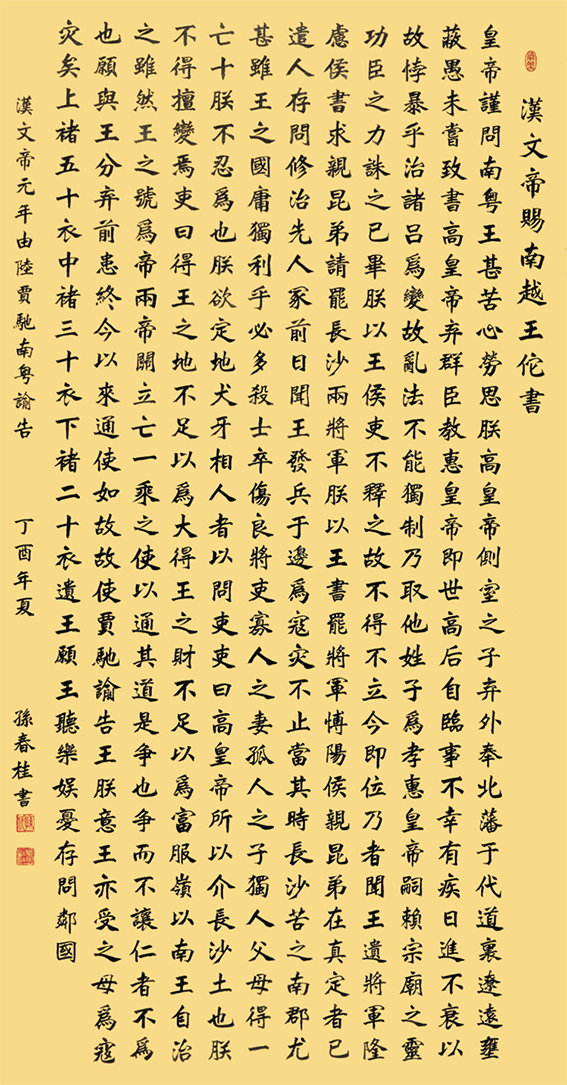 漢文帝賜南越王佗書
皇帝謹問南粤王甚苦心勞思朕高皇帝側室之子弃外奉北藩于代道裏遼遠壅
蔽愚未嘗致書高皇帝弃群臣教惠皇帝即世高后自臨事不幸有疾日進不衰以
故悖暴乎治諸吕爲變故亂法不能獨制乃取他姓子爲孝惠皇帝嗣賴宗廟之靈
功臣之力誅之已畢朕以王侯吏不釋之故不得不立今即位乃者聞王遺將軍隆
慮侯書求親昆弟請罷長沙兩將軍朕以王書罷將軍愽陽侯親昆弟在真定者已
遣人存問修治先人冢前日聞王發兵于邊爲寇灾不止當其時長沙苦之南郡尤
甚雖王之國庸獨利乎必多殺士卒傷良將吏寡人之妻孤人之子獨人父母得一
亡十朕不忍爲也朕欲定地犬牙相人者以問吏吏曰高皇帝所以介長沙土也朕
不得擅變焉吏曰得王之地不足以爲大得王之財不足以爲富服嶺以南王自治
之雖然王之號爲帝兩帝關立亡一乘之使以通其道是争也争而不讓仁者不爲
也願與王分弃前患終今以來通使如故故使賈馳諭告王朕意王亦受之毋爲寇
灾矣上褚五十衣中褚三十衣下褚二十衣遺王願王聽樂娱憂存問鄰國
漢文帝元年由陸賈馳南粤諭告 丁酉年夏 孫春桂書